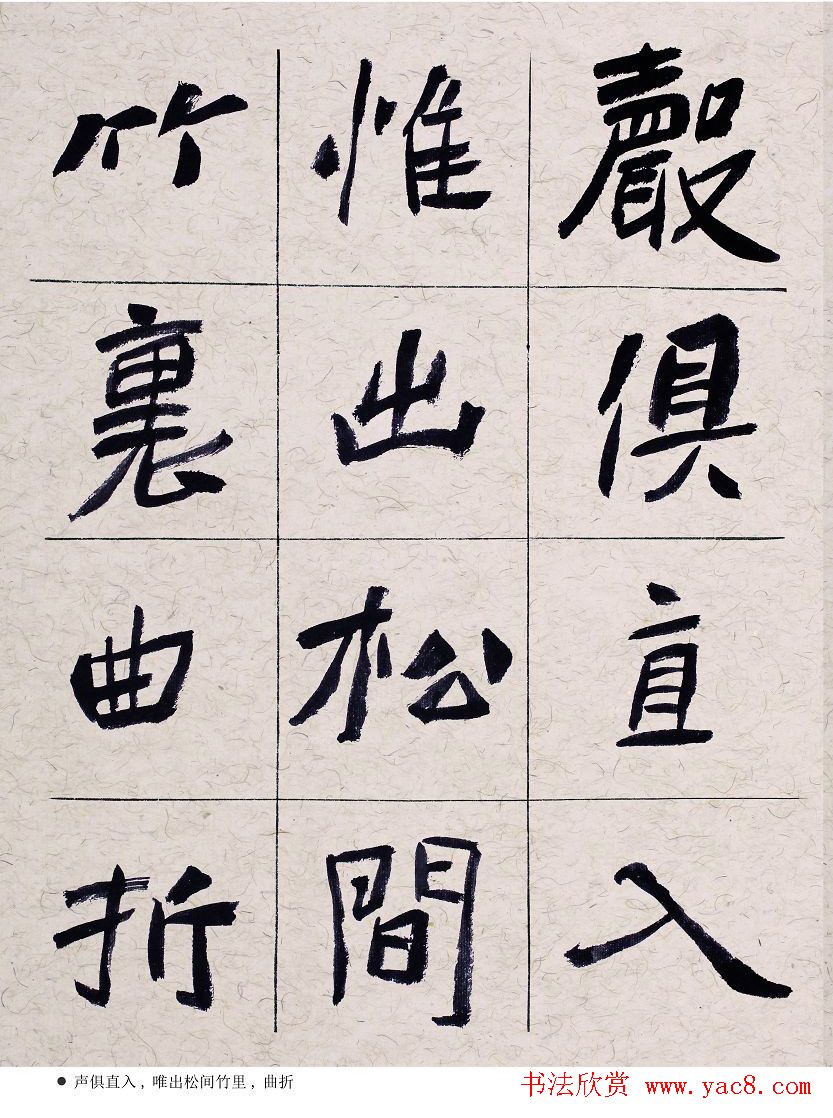 聲俱直入
惟出松間
竹裏曲折
● 声俱直入，唯出松间竹里，曲折
书法欣赏 www.yac8.com